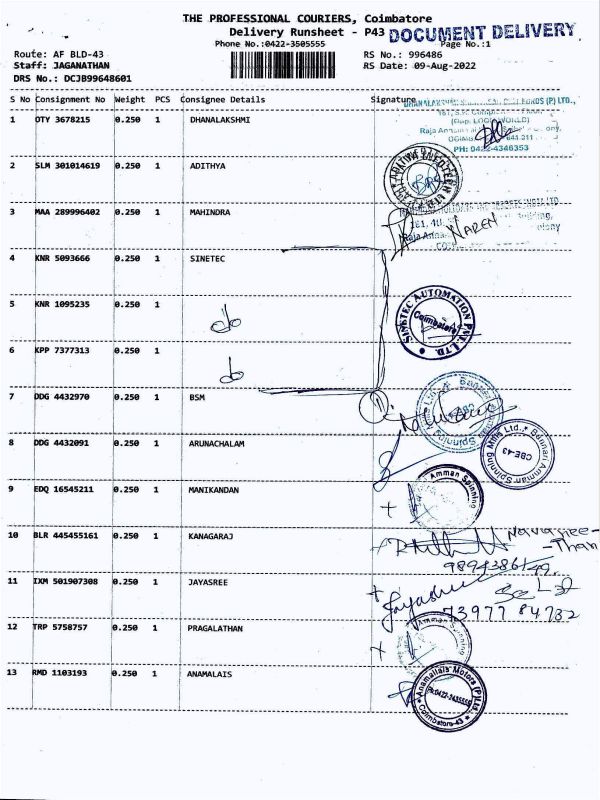 THE PROFESSIONAL COURIERS, Coimbatore
Delivery Runsheet - P43
DOCUMENT DELIVERY
Phone No.:0422-3505555
Page No.:1
Route: AF BLD-43
RS No.: 996486
Staff: JAGANATHAN
RS Date: 09-Aug-2022
DRS No.: DCJB99648601
S No Consignment No Weight PCS Consignee Details Signature
1 OTY 3678215 0.250 1 DHANALAKSHMI
(P) LTD.,
PH: 0422-4346353
2 SLM 301014619 0.250 1 ADITHYA
3 MAA 289996402 0.250 1 MAHINDRA
NAREN
4 KNR 5093666 0.250 1 SINETEC
5 KNR 1095235 0.250 1
do
SINETEC AUTOMATION PVT. LTD.
Coimbatore
6 KPP 7377313 0.250 1
do
7 DDG 4432970 0.250 1 BSM
8 DDG 4432091 0.250 1 ARUNACHALAM
Bannari Amman Spinning Mills Ltd.,
CBE-43
9 EDQ 16545211 0.250 1 MANIKANDAN
Amman Spinning
10 BLR 445455161 0.250 1 KANAGARAJ
11 IXM 501907308 0.250 1 JAYASREE
Jayashree
73977 84732
12 TRP 5758757 0.250 1 PRAGALATHAN
Amman Spinning
13 RMD 1103193 0.250 1 ANAMALAIS
Anamallais Motors (P) Ltd.
Coimbatore-43